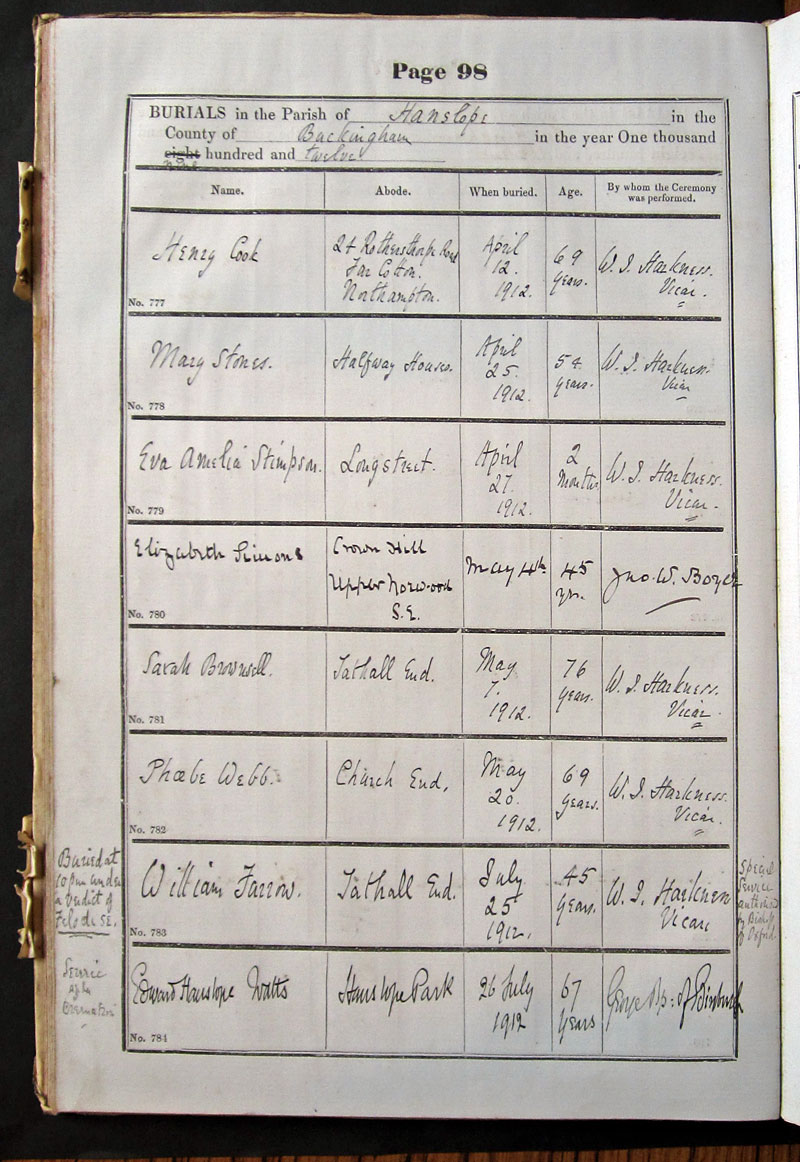 Page 98
BURIALS in the Parish of Hanslope in the
County of Buckingham in the year One thousand
eight hundred and twelve
nine
Name. Abode. When buried. Age. By whom the Ceremony was performed.
Henry Cook
24 Rothersthorpe Road
Far Cotton.
Northampton.
April
12.
1912.
69
years.
W. J. Harkness.
Vicar.
No. 777
Mary Stones.
Halfway Houses.
April
25.
1912.
54
years.
W. J. Harkness.
Vicar
No. 778
Eva Amelia Stimpson.
Longstreet.
April
27.
1912.
2
Months
W. J. Harkness.
Vicar.
No. 779
Elizabeth Simons
Crown Hill
Upper Norwood
S.E.
May 4th
45
yrs.
Jno. W. Boyer
No. 780
Sarah Brownsell.
Tathall End.
May
7.
1912.
76
years.
W. J. Harkness.
Vicar.
No. 781
Phœbe Webb.
Church End.
May
20.
1912.
69
years.
W. J. Harkness.
Vicar.
No. 782
Buried at
10 pm under
a verdict of
Felo de se.
William Farrow.
Tathall End.
July
25
1912.
45
years.
W. J. Harkness
Vicar
Special
Service
authorised
by Bishop
of Oxford.
No. 783
Service
after
Cremation
Edward Hanslope Watts
Hanslope Park
26 July
1912
67
years
George Bp: of Edinburgh
No. 784